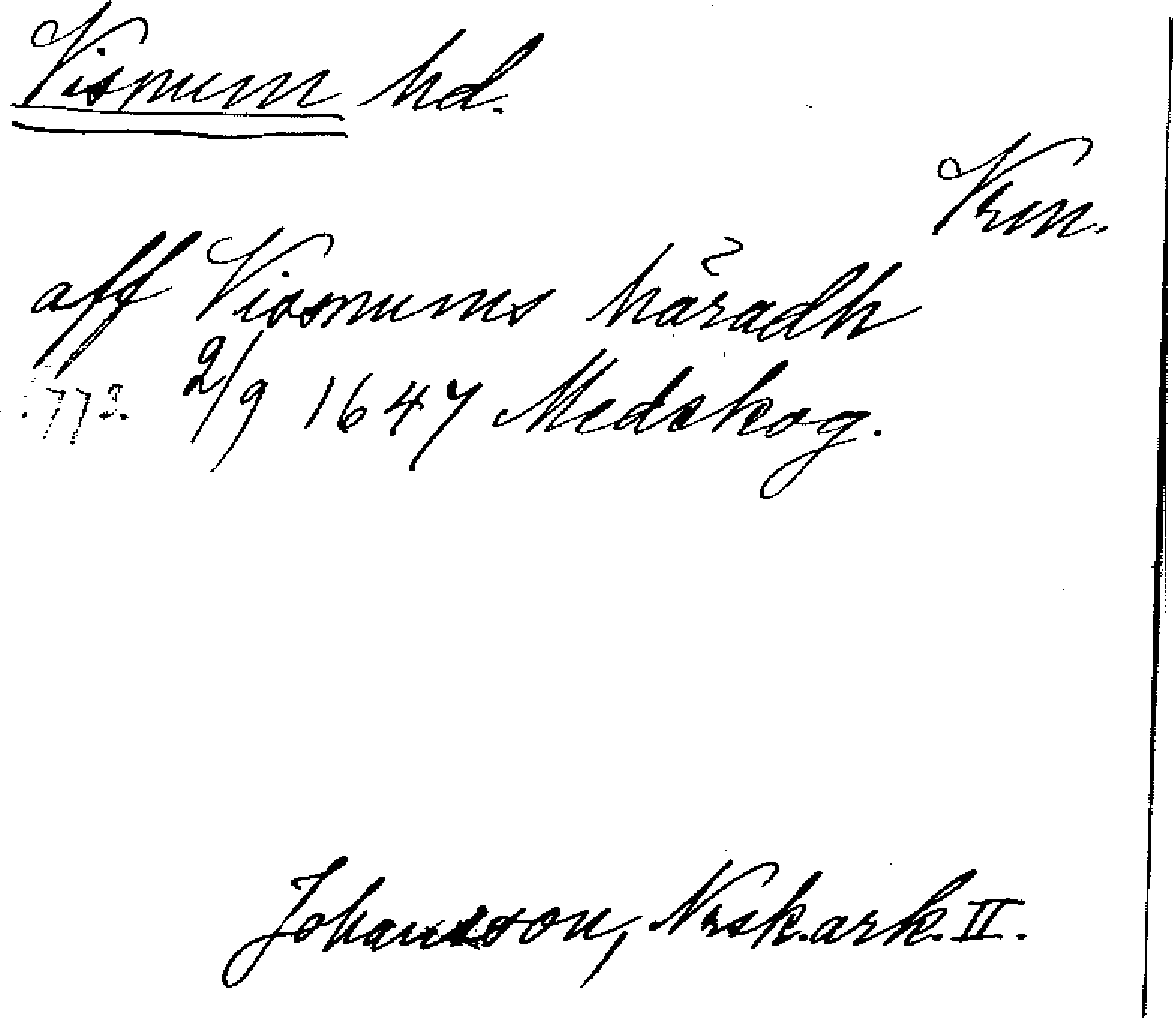 Visnum hd.
Vrm.
aff Visnums häradh
2/9 1647 Medskog.
Johansson, Nrsk. ark. II.